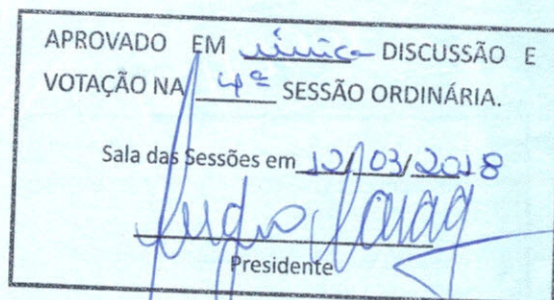 APROVADO EM única DISCUSSÃO E
VOTAÇÃO NA 4ª SESSÃO ORDINÁRIA.
Sala das Sessões em 12/03/2018
Presidente